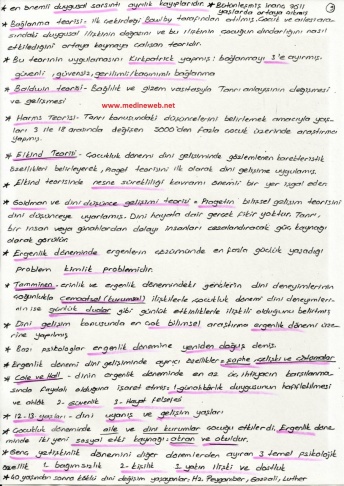 * en önemli duygusal sarsıntı ayrılık kayıplarıdır. * Bütünleşmiş inanç
yaşlarda ortaya çıkmış
* Bağlanma teorisi- ilk tarafından atılmış. Çocuk ve ailesi ara-
sındaki duygusal ilişkinin doğasını ve bu ilişkinin çocuğun dindarlığını nasıl
etkilediğini ortaya koymaya çalışan teoridir.
* Bu teorinin uygulamasını Kirkpatrick yapmış; bağlanmayı 3'e ayırmış.
güvenli, güvensiz, gerilimli/kaçınımlı bağlanma
* Baldwin teorisi- Bağlılık ve gizem vasıtasıyla Tanrı anlayışının değişmesi
ve gelişmesi
www.medineweb.net
* Harms Teorisi- Tanrı konusundaki düşüncelerini belirlemek amacıyla yaş-
ları 3 ile 18 arasında değişen 3000'den fazla çocuk üzerinde araştırma
yapmış.
* Elkind Teorisi- Çocukluk dönemi dini gelişiminde gözlemlenen karakteristik
özellikleri belirleyerek, Piaget teorisini ilk olarak dini gelişime uygulamış.
* Elkind teorisinde nesne sürekliliği kavramı önemli bir yer işgal eder.
* Goldman ve dini düşünce gelişimi teorisi = Piagetin bilişsel gelişim teorisini
dini düşünceye uyarlamış. Dini hayala dair gerçek fikir yoktur. Tanrı,
bir insan veya günahlardan dolayı insanları cezalandıracak güç kaynağı
olarak görülür.
* Ergenlik döneminde ergenlerin çözümünde en fazla güçlük yaşadığı
problem kimlik problemidir.
* Tamminen- erinlik ve ergenlik dönemindeki gençlerin dini deneyimlerinin
çoğunlukla cemaatsel (kurumsal) ilişkilerle, çocukluk dönemi dini deneyimleri-
nin ise günlük dualar gibi günlük etkinliklerle ilişkili olduğunu belirtmiş
* Dini gelişim konusunda en çok bilimsel araştırma ergenlik dönemi üze-
rine yapılmış
* Bazı psikologlar ergenlik dönemine yeniden doğuş demiş.
* Ergenlik dönemi dini gelişiminde ayırıcı özellikler = şüphe, çelişki ve
* Cole ve Hall- dinin ergenlik döneminde en az üç ihtiyacın karşılanma-
sında faydalı olduğuna işaret etmiş; 1. günahkârlık duygusunun hafifletilmesi
ve ahlâk 2- güvenlik 3- Hayat felsefesi
* 12-13 yaşları- dini uyanış ve gelişim yaşları
* Çocukluk döneminde aile ve dini kurumlar çocuğu etkilerdi, Ergenlik döne-
minde iki yeni sosyal etki kaynağı; akran ve okuldur.
* Genç yetişkinlik dönemini diğer dönemlerden ayıran 3 temel psikolojik
özellik 1. bağımsızlık 2- kişilik 3. yakın ilişki ve dostluk
* 40 yaşından sonra köklü dini değişim yaşayanlar; Hz. Peygamber, Gazali, Luther